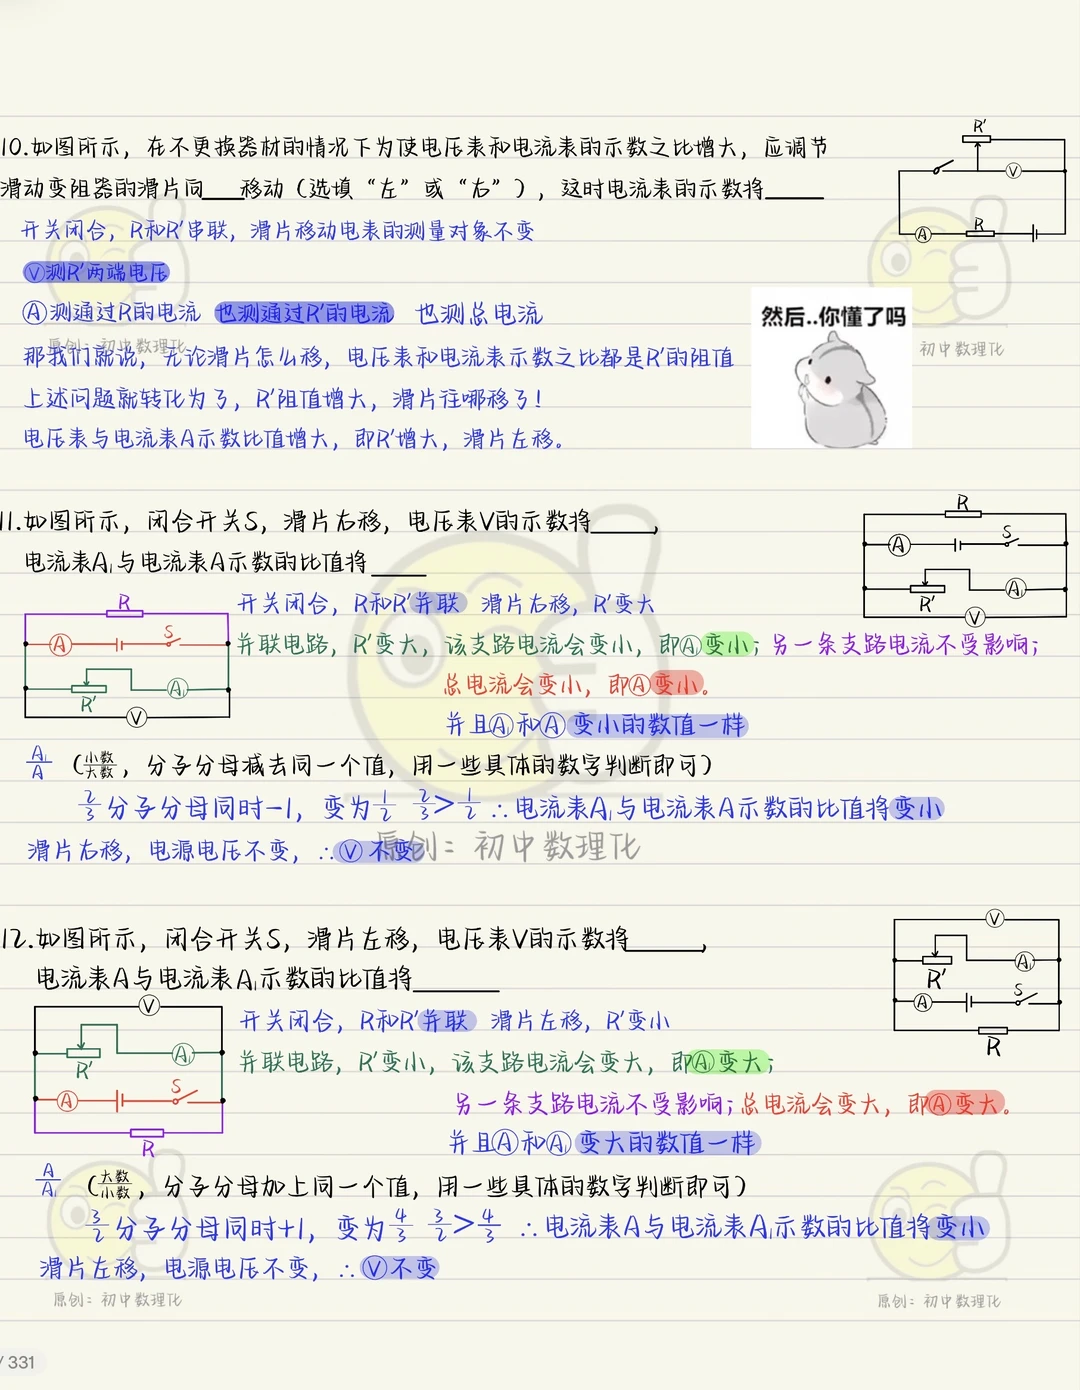 10.如图所示，在不更换器材的情况下为使电压表和电流表的示数之比增大，应调节
滑动变阻器的滑片向___移动（选填“左”或“右”），这时电流表的示数将_____
R'
V
A
R
开关闭合，R和R'串联，滑片移动电表的测量对象不变
Ⓥ测R'两端电压
Ⓐ测通过R的电流 也测通过R'的电流 也测总电流
那我们就说，无论滑片怎么移，电压表和电流表示数之比都是R'的阻值
上述问题就转化为了，R'阻值增大，滑片往哪移了！
电压表与电流表A示数比值增大，即R'增大，滑片左移。
然后..你懂了吗
原创：初中数理化
初中数理化
11.如图所示，闭合开关S，滑片右移，电压表V的示数将_____，
电流表A₁与电流表A示数的比值将____
R
A
S
R'
A₁
V
R
A
S
R'
A₁
V
开关闭合，R和R'并联 滑片右移，R'变大
并联电路，R'变大，该支路电流会变小，即Ⓐ₁变小；另一条支路电流不受影响；
总电流会变小，即Ⓐ变小。
并且Ⓐ₁和Ⓐ变小的数值一样
A₁/A （小数/大数，分子分母减去同一个值，用一些具体的数字判断即可）
2/3分子分母同时-1，变为1/2 2/3>1/2 ∴电流表A₁与电流表A示数的比值将变小
滑片右移，电源电压不变，∴Ⓥ不变
原创：初中数理化
12.如图所示，闭合开关S，滑片左移，电压表V的示数将_____，
电流表A与电流表A₁示数的比值将_____
V
R'
A₁
A
S
R
V
R'
A₁
A
S
R
开关闭合，R和R'并联 滑片左移，R'变小
并联电路，R'变小，该支路电流会变大，即Ⓐ₁变大；
另一条支路电流不受影响；总电流会变大，即Ⓐ变大。
并且Ⓐ和Ⓐ₁变大的数值一样
A/A₁ （大数/小数，分子分母加上同一个值，用一些具体的数字判断即可）
3/2分子分母同时+1，变为4/3 3/2>4/3 ∴电流表A与电流表A₁示数的比值将变小
滑片左移，电源电压不变，∴Ⓥ不变
原创：初中数理化
原创：初中数理化
/ 331